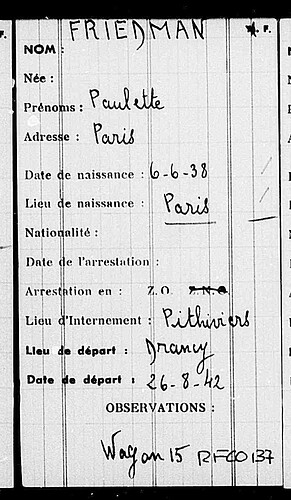 FRIEDMAN
NOM : F.
Née :
Prénoms : Paulette
Adresse : Paris
Date de naissance : 6-6-38
Lieu de naissance : Paris
Nationalité :
Date de l'arrestation :
Arrestation en : Z.O. Z.N.O.
Lieu d'Internement : Pithiviers
Lieu de départ : Drancy
Date de départ : 26-8-42
OBSERVATIONS :
Wagon 15 RFCO 137